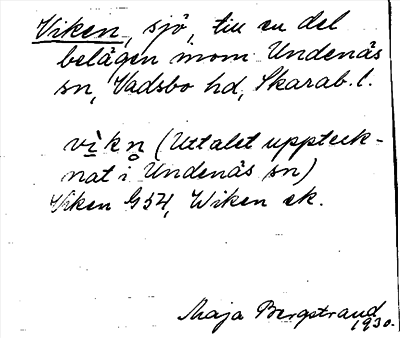 Viken, sjö, till en del
belägen inom Undenäs
sn, Vadsbo hd, Skarab. l.
vìkn̥ (Uttalet uppteck-
nat i Undenäs sn)
Viken G54, Wiken ek.
Maja Bergstrand
1930.